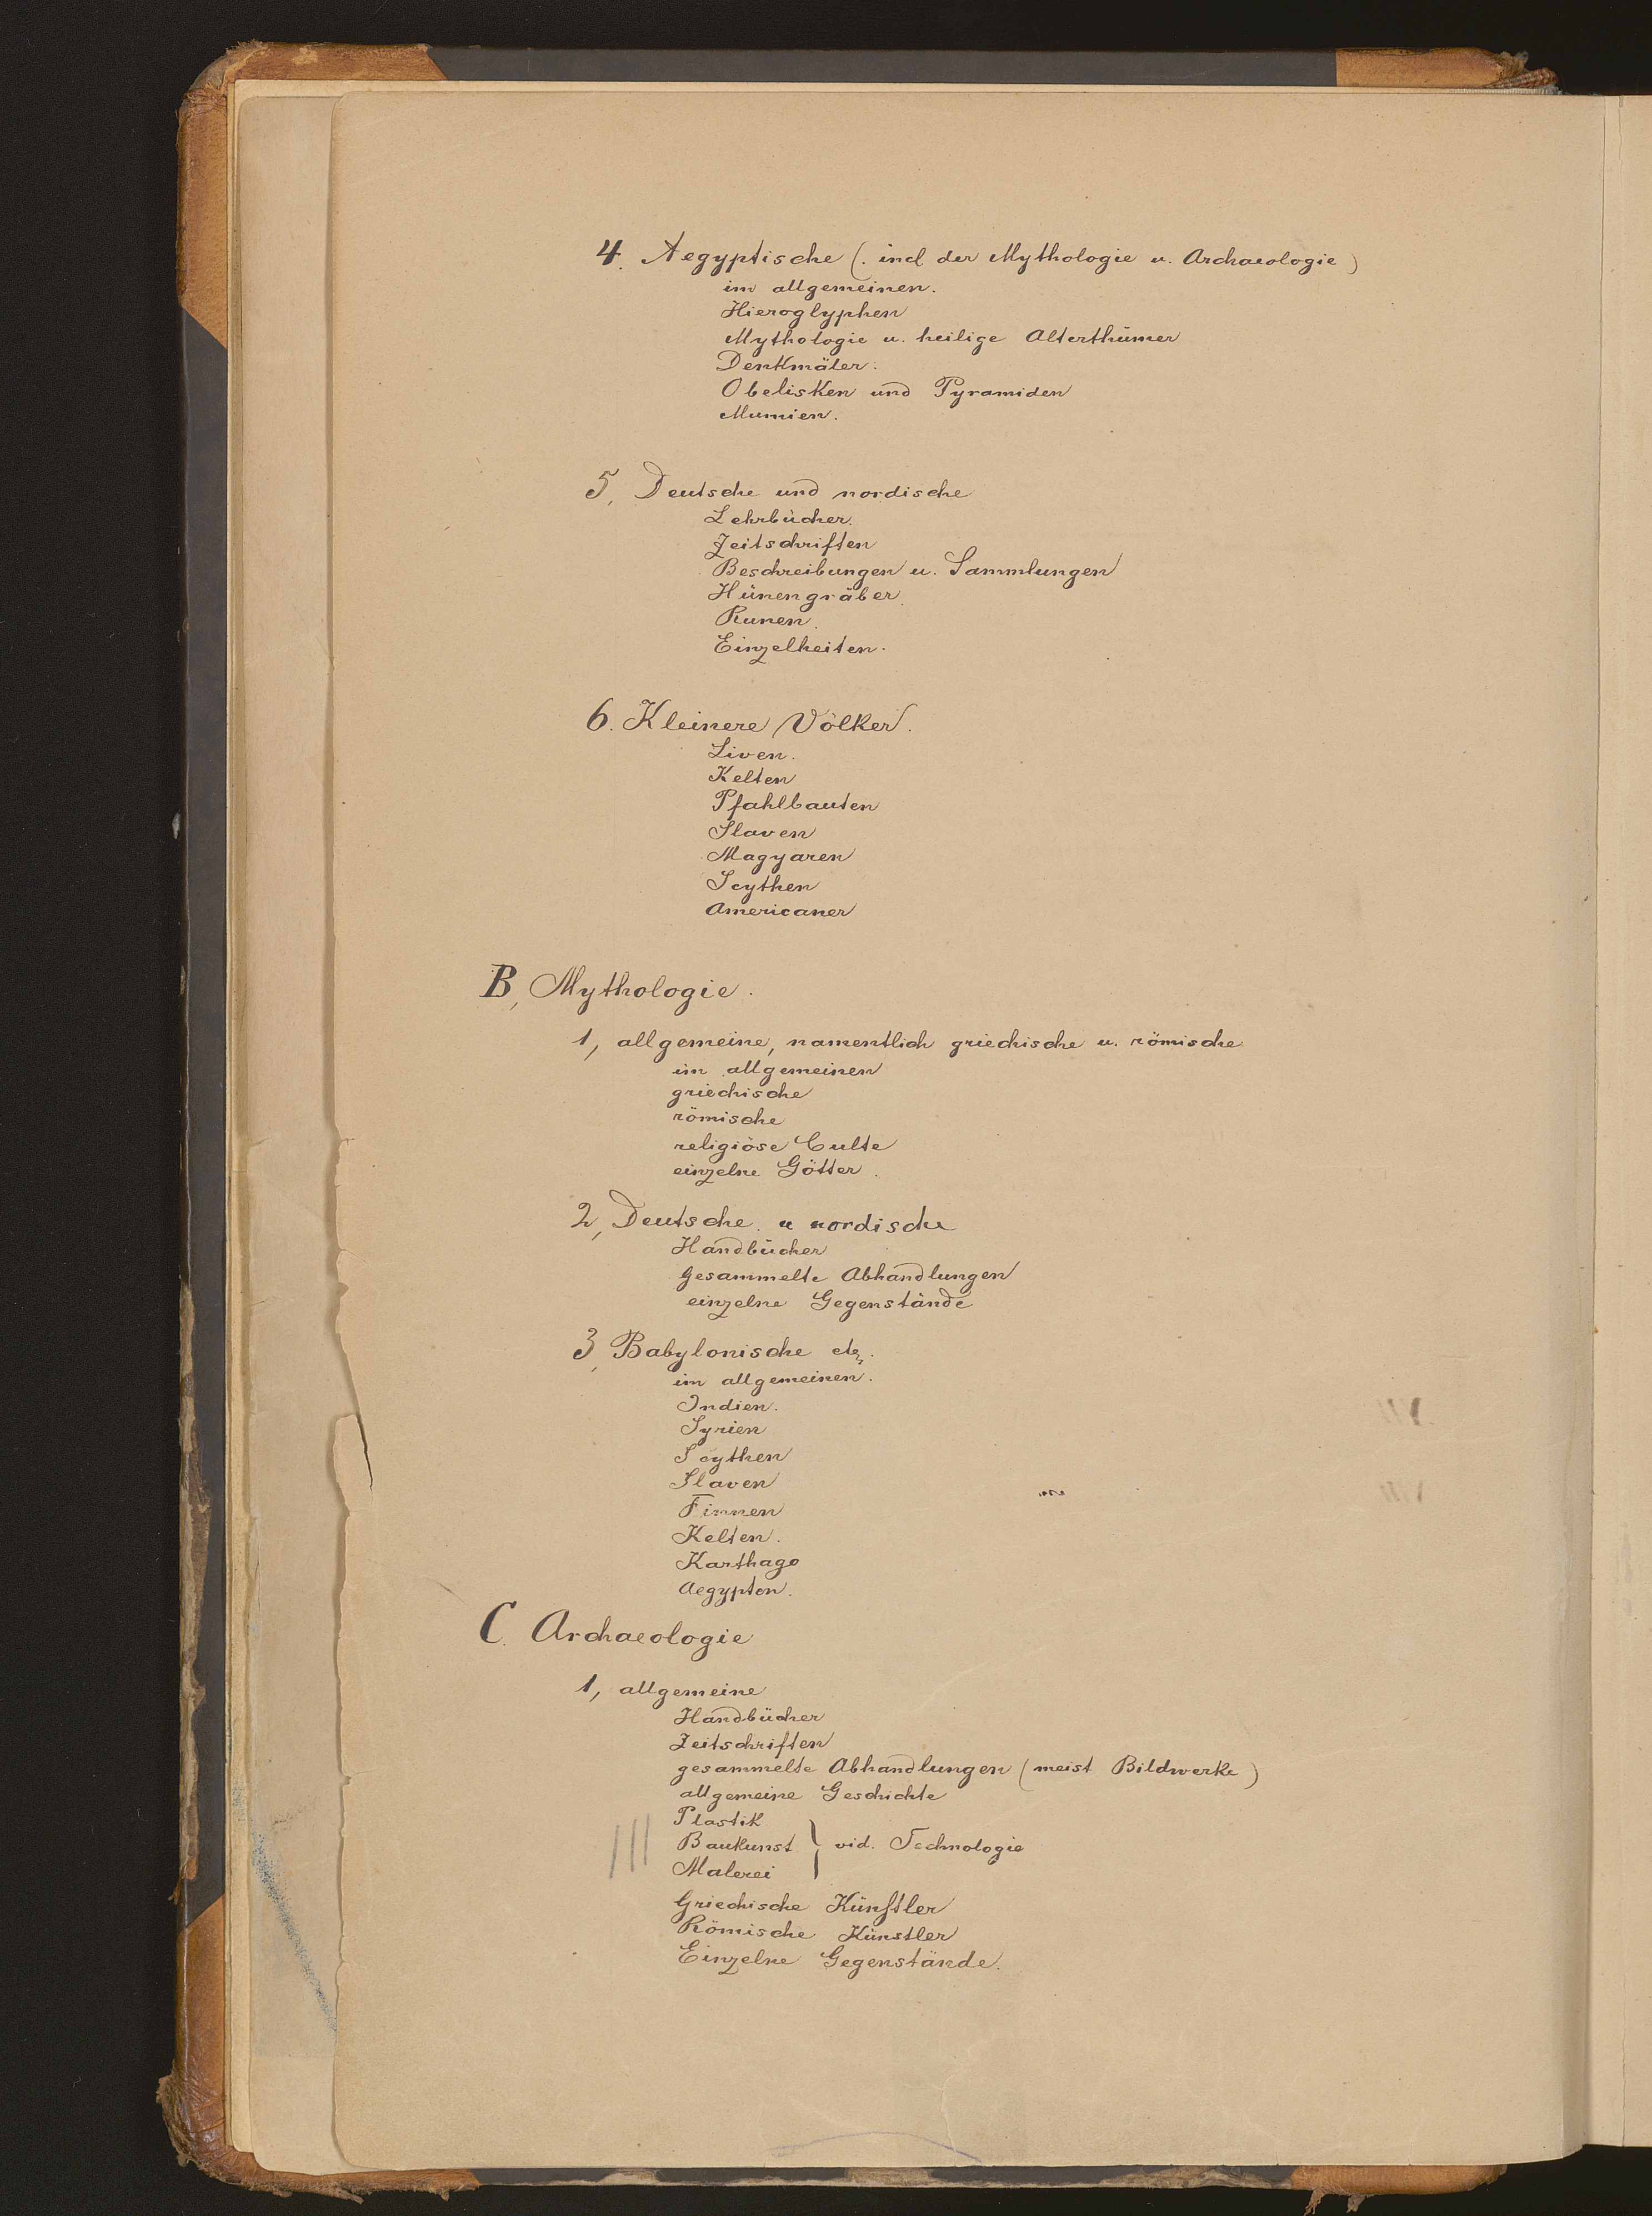 4. Aegyptische (. incl der Mythologie u. Archaeologie)
im allgemeinen.
Hieroglyphen
Mythologie u. heilige Alterthümer
Denkmäler.
Obelisken und Pyramiden
Mumien.
5, Deutsche und nordische
Lehrbücher.
Zeitschriften
Beschreibungen u. Sammlungen
Hünengräber.
Runen.
Einzelheiten.
6. Kleinere Völker.
Liven.
Kelten
Pfahlbauten
Slaven
Magyaren
Scythen
Americaner
B, Mythologie.
1, allgemeine, namentlich griechische u. römische
im allgemeinen
griechische
römische
religiöse Culte
einzelne Götter.
2, Deutsche. u nordische
Handbücher
Gesammelte Abhandlungen
einzelne Gegenstände
3, Babylonische etc.
im allgemeinen.
Indien.
Syrien
Scythen
Slaven
Finnen
Kelten.
Karthago
Aegypten.
C. Archaeologie
1, allgemeine
Handbücher
Zeitschriften
gesammelte Abhandlungen (meist Bildwerke)
allgemeine Geschichte
Plastik
Baukunst } vid. Technologie
Malerei
Griechische Künstler
Römische Künstler
Einzelne Gegenstände.